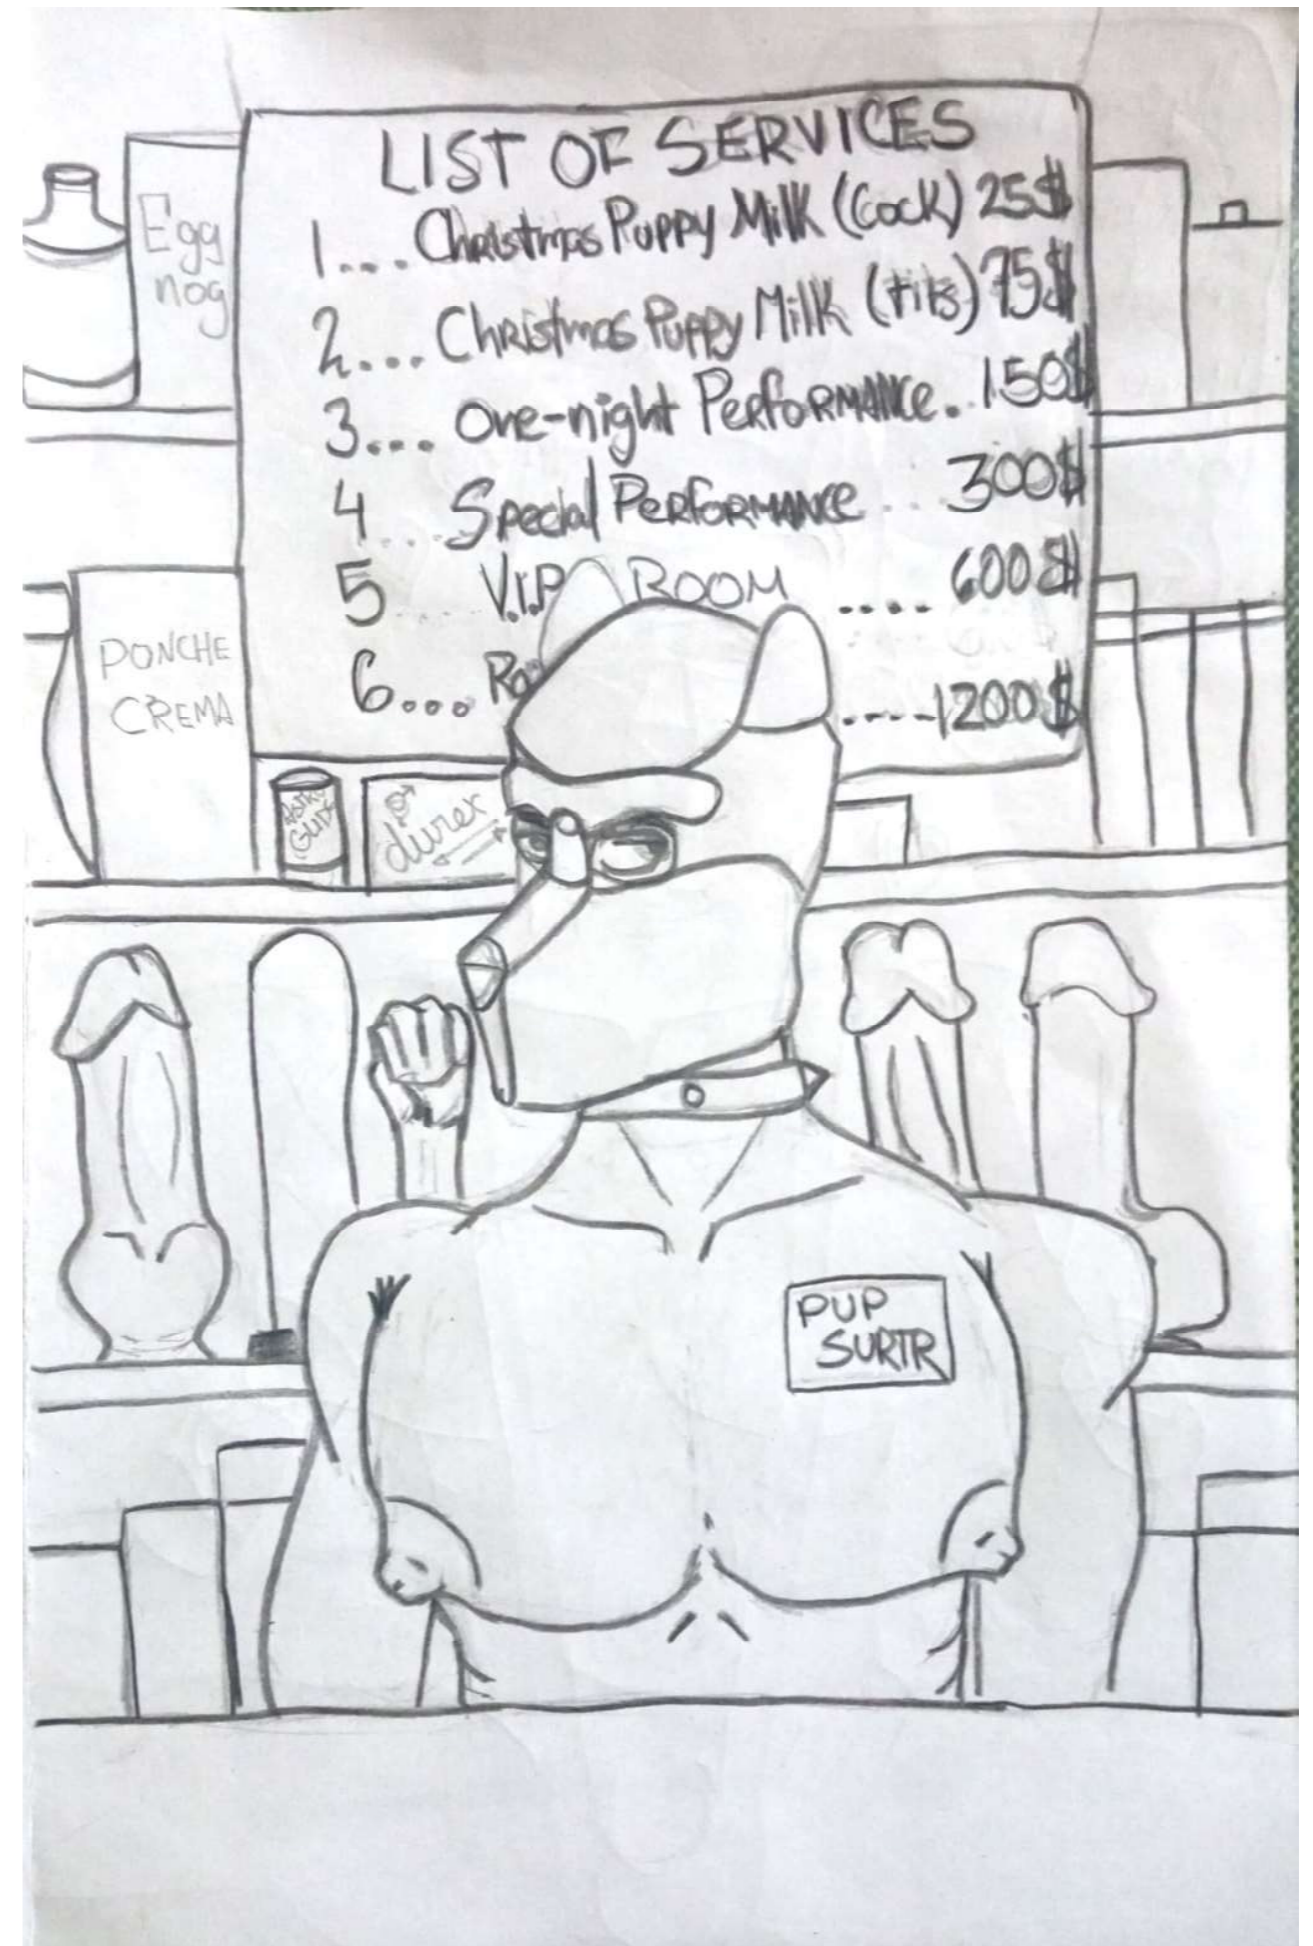 LIST OF SERVICES
1... Christmas Puppy Milk (Cock) 25$
2... Christmas Puppy Milk (tits) 75$
3... One-night Performance. 150$
4.... Special Performance .. 300$
5.... V.I.P ROOM .... 600$
6... .... 1200$
Egg
nog
PONCHE
CREMA
durex
PUP
SURTR